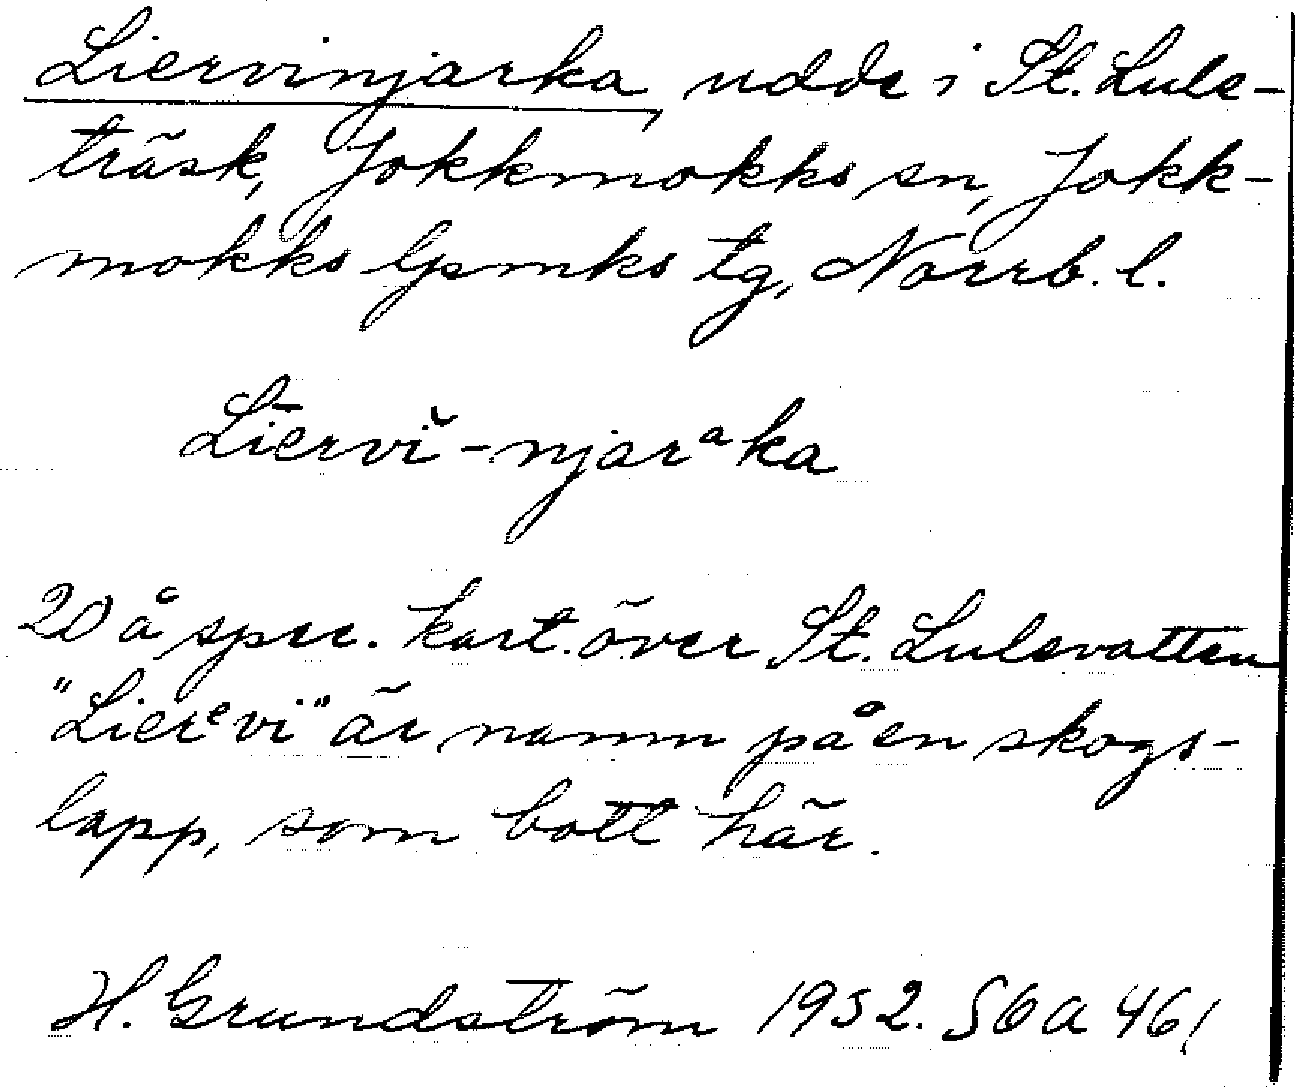 Liervinjarka, udde i St. Lule-
träsk, Jokkmokks sn, Jokk-
mokks lpsmks tg, Norrb. l.
Līervĭ-njarᵃka
20 å spec. kart. över St. Lulevatten
"Lierᵉvi" är namn på en skogs-
lapp, som bott här.
H. Grundström 1952. S6a 461